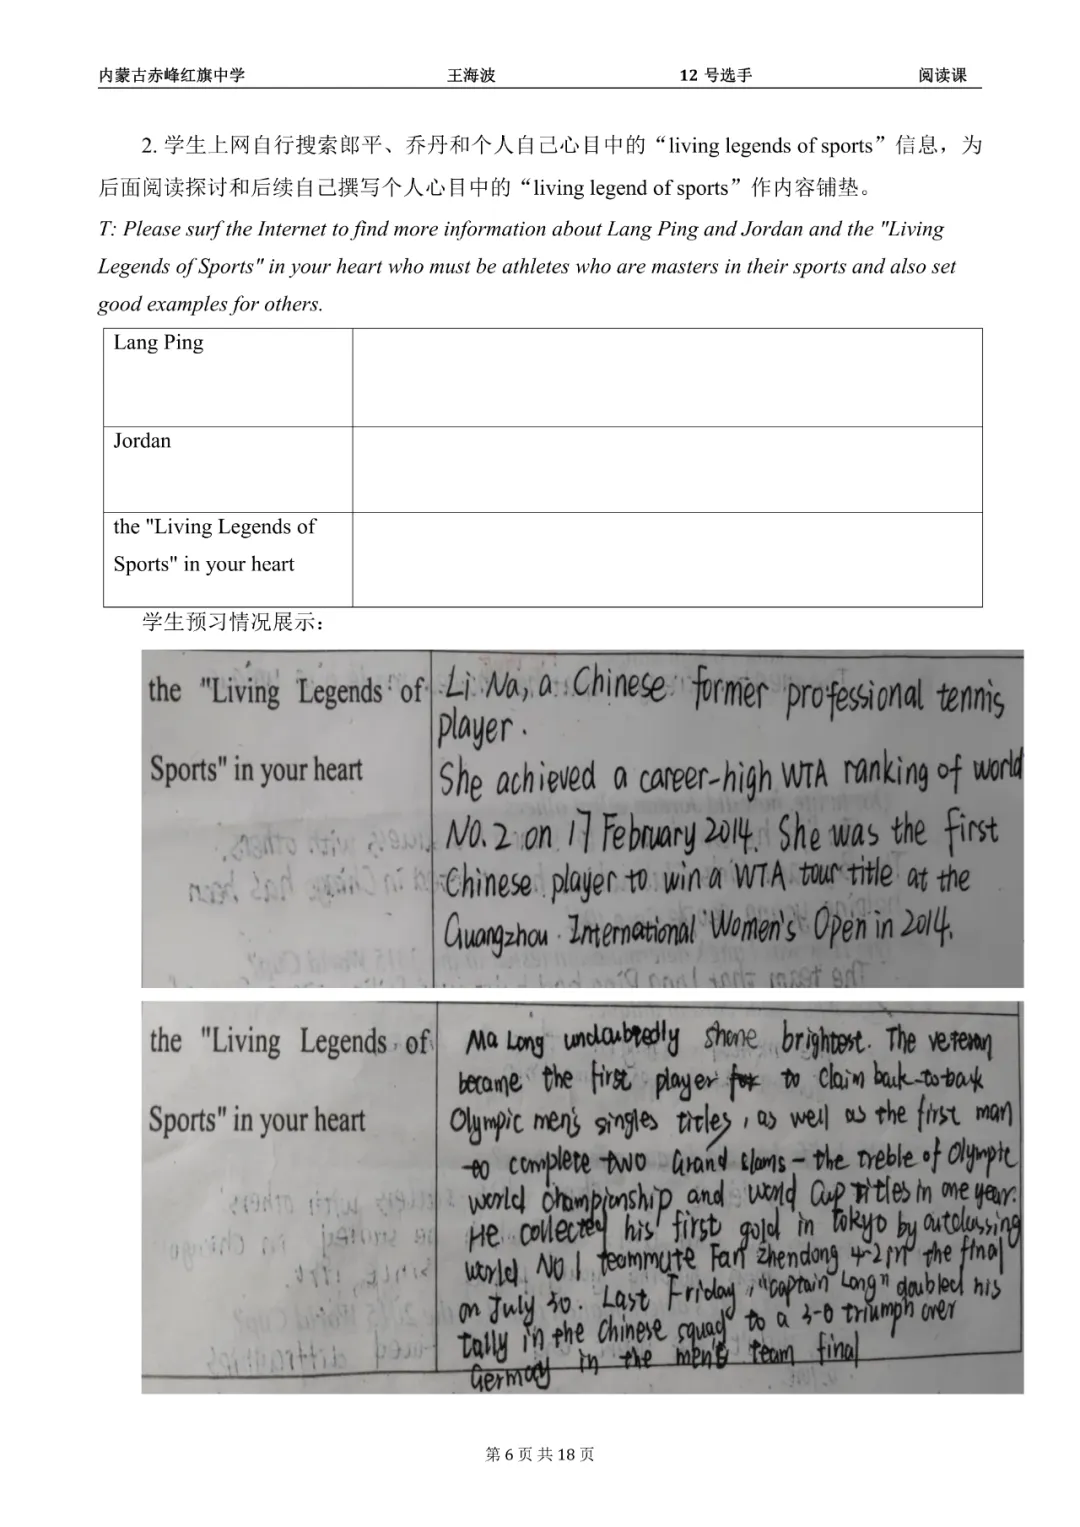 内蒙古赤峰红旗中学 王海波 12 号选手 阅读课
2. 学生上网自行搜索郎平、乔丹和个人自己心目中的“living legends of sports”信息，为
后面阅读探讨和后续自己撰写个人心目中的“living legend of sports”作内容铺垫。
T: Please surf the Internet to find more information about Lang Ping and Jordan and the "Living
Legends of Sports" in your heart who must be athletes who are masters in their sports and also set
good examples for others.
Lang Ping
Jordan
the "Living Legends of
Sports" in your heart
学生预习情况展示：
the "Living Legends of
Sports" in your heart
Li Na, a Chinese former professional tennis
player.
She achieved a career-high WTA ranking of world
NO.2 on 17 February 2014. She was the first
Chinese player to win a WTA tour title at the
Guangzhou International Women's Open in 2014.
the "Living Legends of
Sports" in your heart
Ma Long undoubtedly shone brightest. The veteran
became the first player to claim back-to-back
Olympic men's singles titles, as well as the first man
to complete two Grand slams - the treble of Olympic
world championship and world Cup titles in one year.
He collected his first gold in tokyo by outclassing
world NO 1 teammate Fan zhendong 4-2 in the final
on July 30. Last Friday, "captain Long" doubled his
tally in the Chinese squad to a 3-0 triumph over
Germany in the men's team final
第 6 页 共 18 页